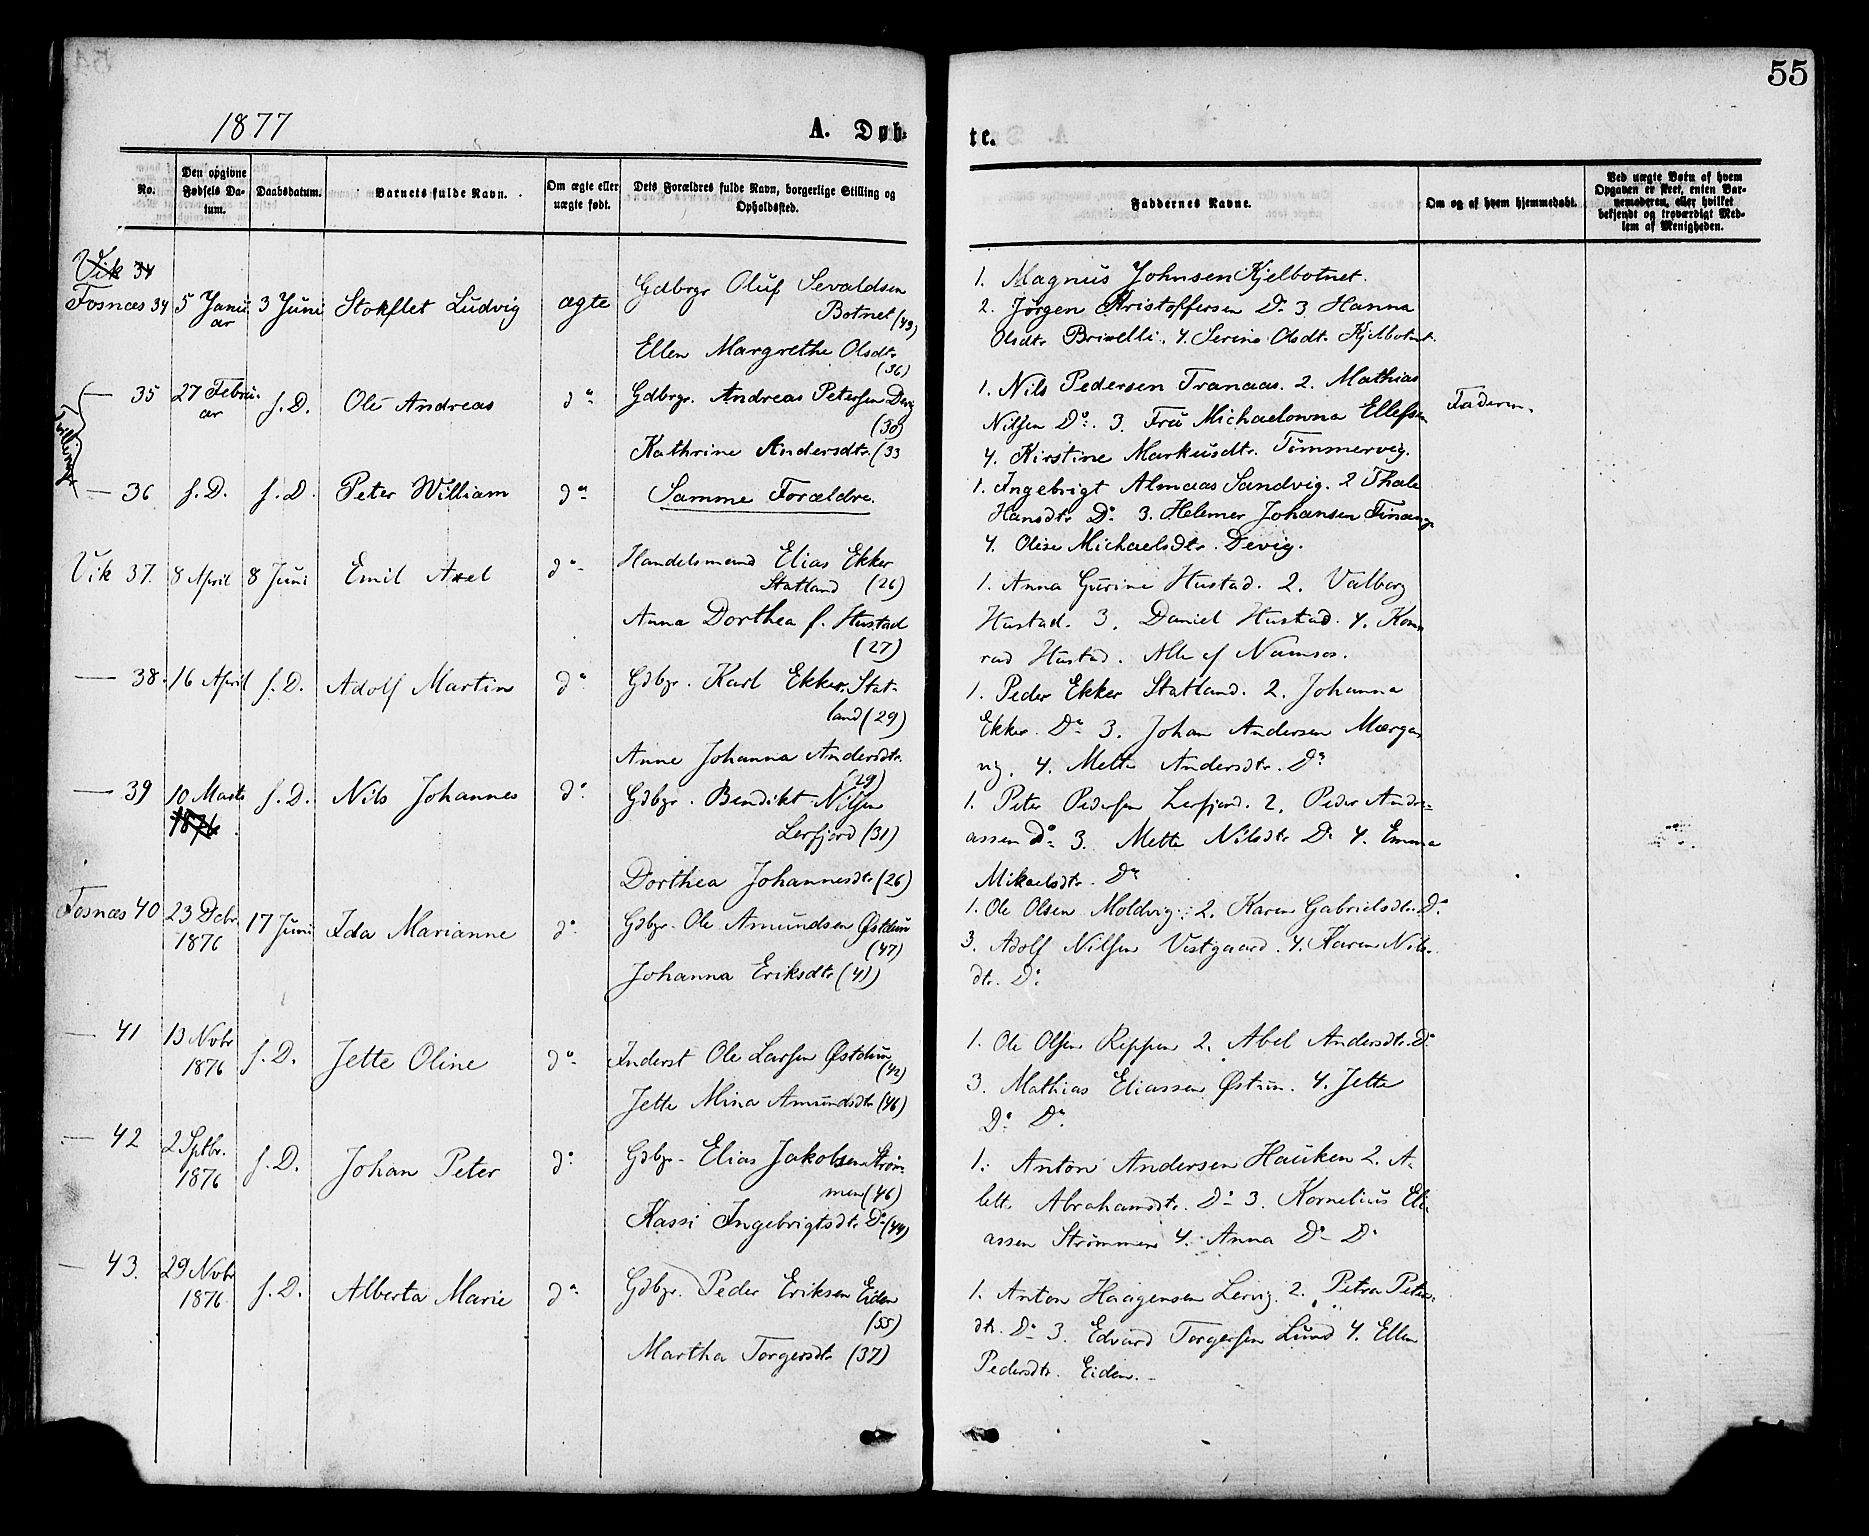 55
1877
A. Døb-
te.
No.
Den opgivne Fødsels Da-tum.
Daabsdatum.
Barnets fulde Navn.
Om ægte eller uægte født.
Dets Forældres fulde Navn, borgerlige Stilling og Opholdssted.
Faddernes Navne.
Om og af hvem hjemmedøbt.
Ved uægte Børn af hvem Opgaven er skeet, enten Bar-nemoderen, eller hvilket bekjendt og troværdigt Med-lem af Menigheden.
Vik 34
Fosnæs 34 5 Janu-ar 3 Juni Stokflet Ludvig ægte
Gdbrgr Oluf Sevaldsen
Botnet (43)
Ellen Margrethe Olsdtr.
(36)
1. Magnus Johnsen Kjelbotnet.
2. Jørgen Kristoffersen Do 3 Hanna
Olsdtr. 4. Serine Olsdt. Kjelbotnet.
Tvillinger
— 35 27 Febru-ar s. D. Ole Andreas do
Gdbrgr. Andreas Petersen Devig
(30)
Kathrine Andersdtr. (33
1. Nils Pedersen Tranaas. 2. Mathias
Nilsen Do. 3. Fru Michaelowna Ellefsen
4. Kirstine Markusdtr. Tømmervig.
Faderen.
— 36 s. D. s. D. Peter William do
Samme Forældre.
1. Ingebrigt Almaas Sandvig. 2 Thale
Hansdtr Do 3. Helmer Johansen Finvang
4. Olise Michaelsdtr. Devig.
Vik 37. 8 April 8 Juni Emil Axel do
Handelsmand Elias Ekker
Statland (26)
Anna Dorthea f. Hustad
(27)
1. Anna Gurine Hustad. 2. Valborg
Hustad. 3. Daniel Hustad. 4. Kon-
rad Hustad. Alle af Namsos.
— 38. 16 April s. D. Adolf Martin do
Gdbgr. Karl Ekker, Stat-
land (29)
Anne Johanna Andersdtr.
(29)
1. Peder Ekker Statland. 2. Johanna
Ekker. Do 3. Johan Andersen Mærra-
vig. 4. Mette Andersdtr. Do
— 39 10 Marts 1876 s. D. Nils Johannes do
Gdbgr. Bendikt Nilsen
Lerfjord (31)
Dorthea Johannesdtr (26)
1. Peter Pedersen Lerfjord. 2. Peder Andre-
assen Do 3. Mette Nilsdtr Do 4. Emma
Mikaelsdtr. Do
Fosnæs 40 23 Decbr 1876 17 Juni Ida Marianne do
Gdbgr. Ole Amundsen Østduun
(47)
Johanna Eriksdtr (41)
1. Ole Olsen Moldvig. 2. Karen Gabrielsdtr. Do
3. Adolf Nilsen Vestgaard. 4. Karen Nils-
dtr. Do
— 41 13 Novbr 1876 s. D. Jette Oline do
Inderst Ole Larsen Østduun
(42)
Jette Mina Amundsdtr (46)
1. Ole Olsen Reppen 2. Abel Andersdtr. Do
3. Mathias Eliassen Østuun. 4. Jette
Do Do
— 42 2 Sptbr. 1876 s. D. Johan Peter do
Gdbgr. Elias Jakobsen Strøm-
men (46)
Kassi Ingebrigtsdtr Do (44)
1. Anton Andersen Hauken 2. A-
lette Abrahamsdtr. Do 3. Kornelius Eli-
assen Strømmen 4. Anna Do Do
— 43. 29 Novbr 1876 s. D. Alberta Marie do
Gdbgr. Peder Eriksen Eiden
(55)
Martha Torgersdtr (37)
1. Anton Haagensen Lervig. 2. Petra Peters-
dtr. Do 3. Edvard Torgersen Lund 4. Ellen
Pedersdtr. Eiden.